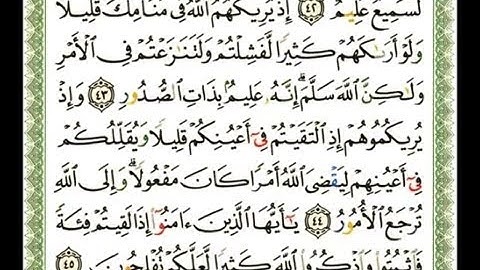 لَسَمِيعٌ عَلِيمٌ ٤٢ إِذْ يُرِيكَهُمُ ٱللَّهُ فِى مَنَامِكَ قَلِيلًا
وَلَوْ أَرَىٰكَهُمْ كَثِيرًا لَّفَشِلْتُمْ وَلَتَنَـٰزَعْتُمْ فِى ٱلْأَمْرِ
وَلَـٰكِنَّ ٱللَّهَ سَلَّمَ ۗ إِنَّهُۥ عَلِيمٌۢ بِذَاتِ ٱلصُّدُورِ ٤٣ وَإِذْ
يُرِيكُمُوهُمْ إِذِ ٱلْتَقَيْتُمْ فِىٓ أَعْيُنِكُمْ قَلِيلًا وَيُقَلِّلُكُمْ
فِىٓ أَعْيُنِهِمْ لِيَقْضِىَ ٱللَّهُ أَمْرًا كَانَ مَفْعُولًا ۗ وَإِلَى ٱللَّهِ
تُرْجَعُ ٱلْأُمُورُ ٤٤ يَـٰٓأَيُّهَا ٱلَّذِينَ ءَامَنُوٓا۟ إِذَا لَقِيتُمْ فِئَةً
فَٱثْبُتُوا۟ وَٱذْكُرُوا۟ ٱللَّهَ كَثِيرًا لَّعَلَّكُمْ تُفْلِحُونَ ٤٥